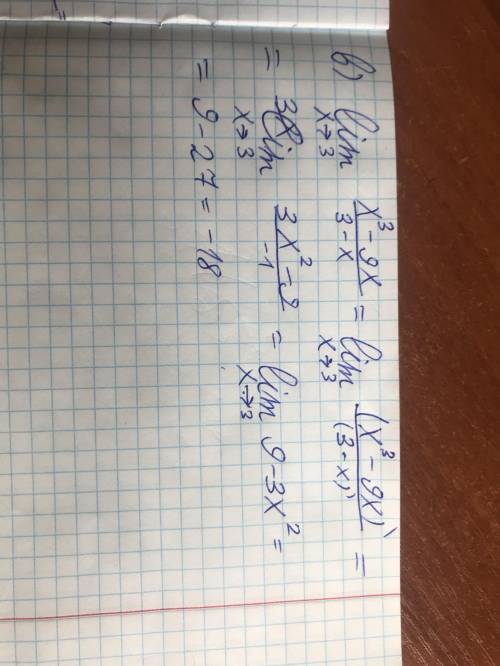 в) lim x→3 (x³ - 9x)/(3 - x) = lim x→3 (x³ - 9x)'/(3 - x)' =
= lim x→3 (3x² - 9)/(-1) = lim x→3 9 - 3x² =
= 9 - 27 = -18